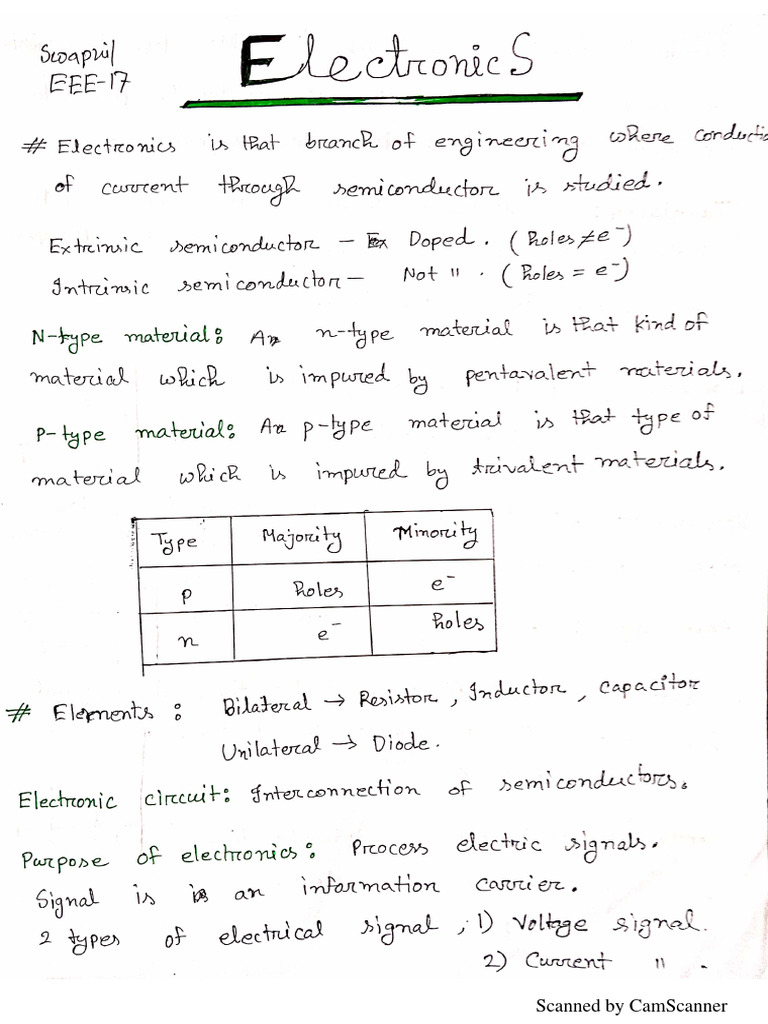 Swapnil
EEE-17
Electronics
# Electronics is that branch of engineering where conductio
of current through semiconductor is studied.
Extrinsic semiconductor – Doped. (holes ≠ e⁻)
Intrinsic semiconductor – Not ". (holes = e⁻)
N-type material: An n-type material is that kind of
material which is impured by pentavalent materials.
P-type material: An p-type material is that type of
material which is impured by trivalent materials.
Type Majority Minority
p holes e⁻
n e⁻ holes
# Elements: Bilateral → Resistor, Inductor, Capacitor
Unilateral → Diode.
Electronic circuit: Interconnection of semiconductors.
Purpose of electronics: Process electric signals.
Signal is an information carrier.
2 types of electrical signal, 1) Voltage signal.
2) Current ".
Scanned by CamScanner